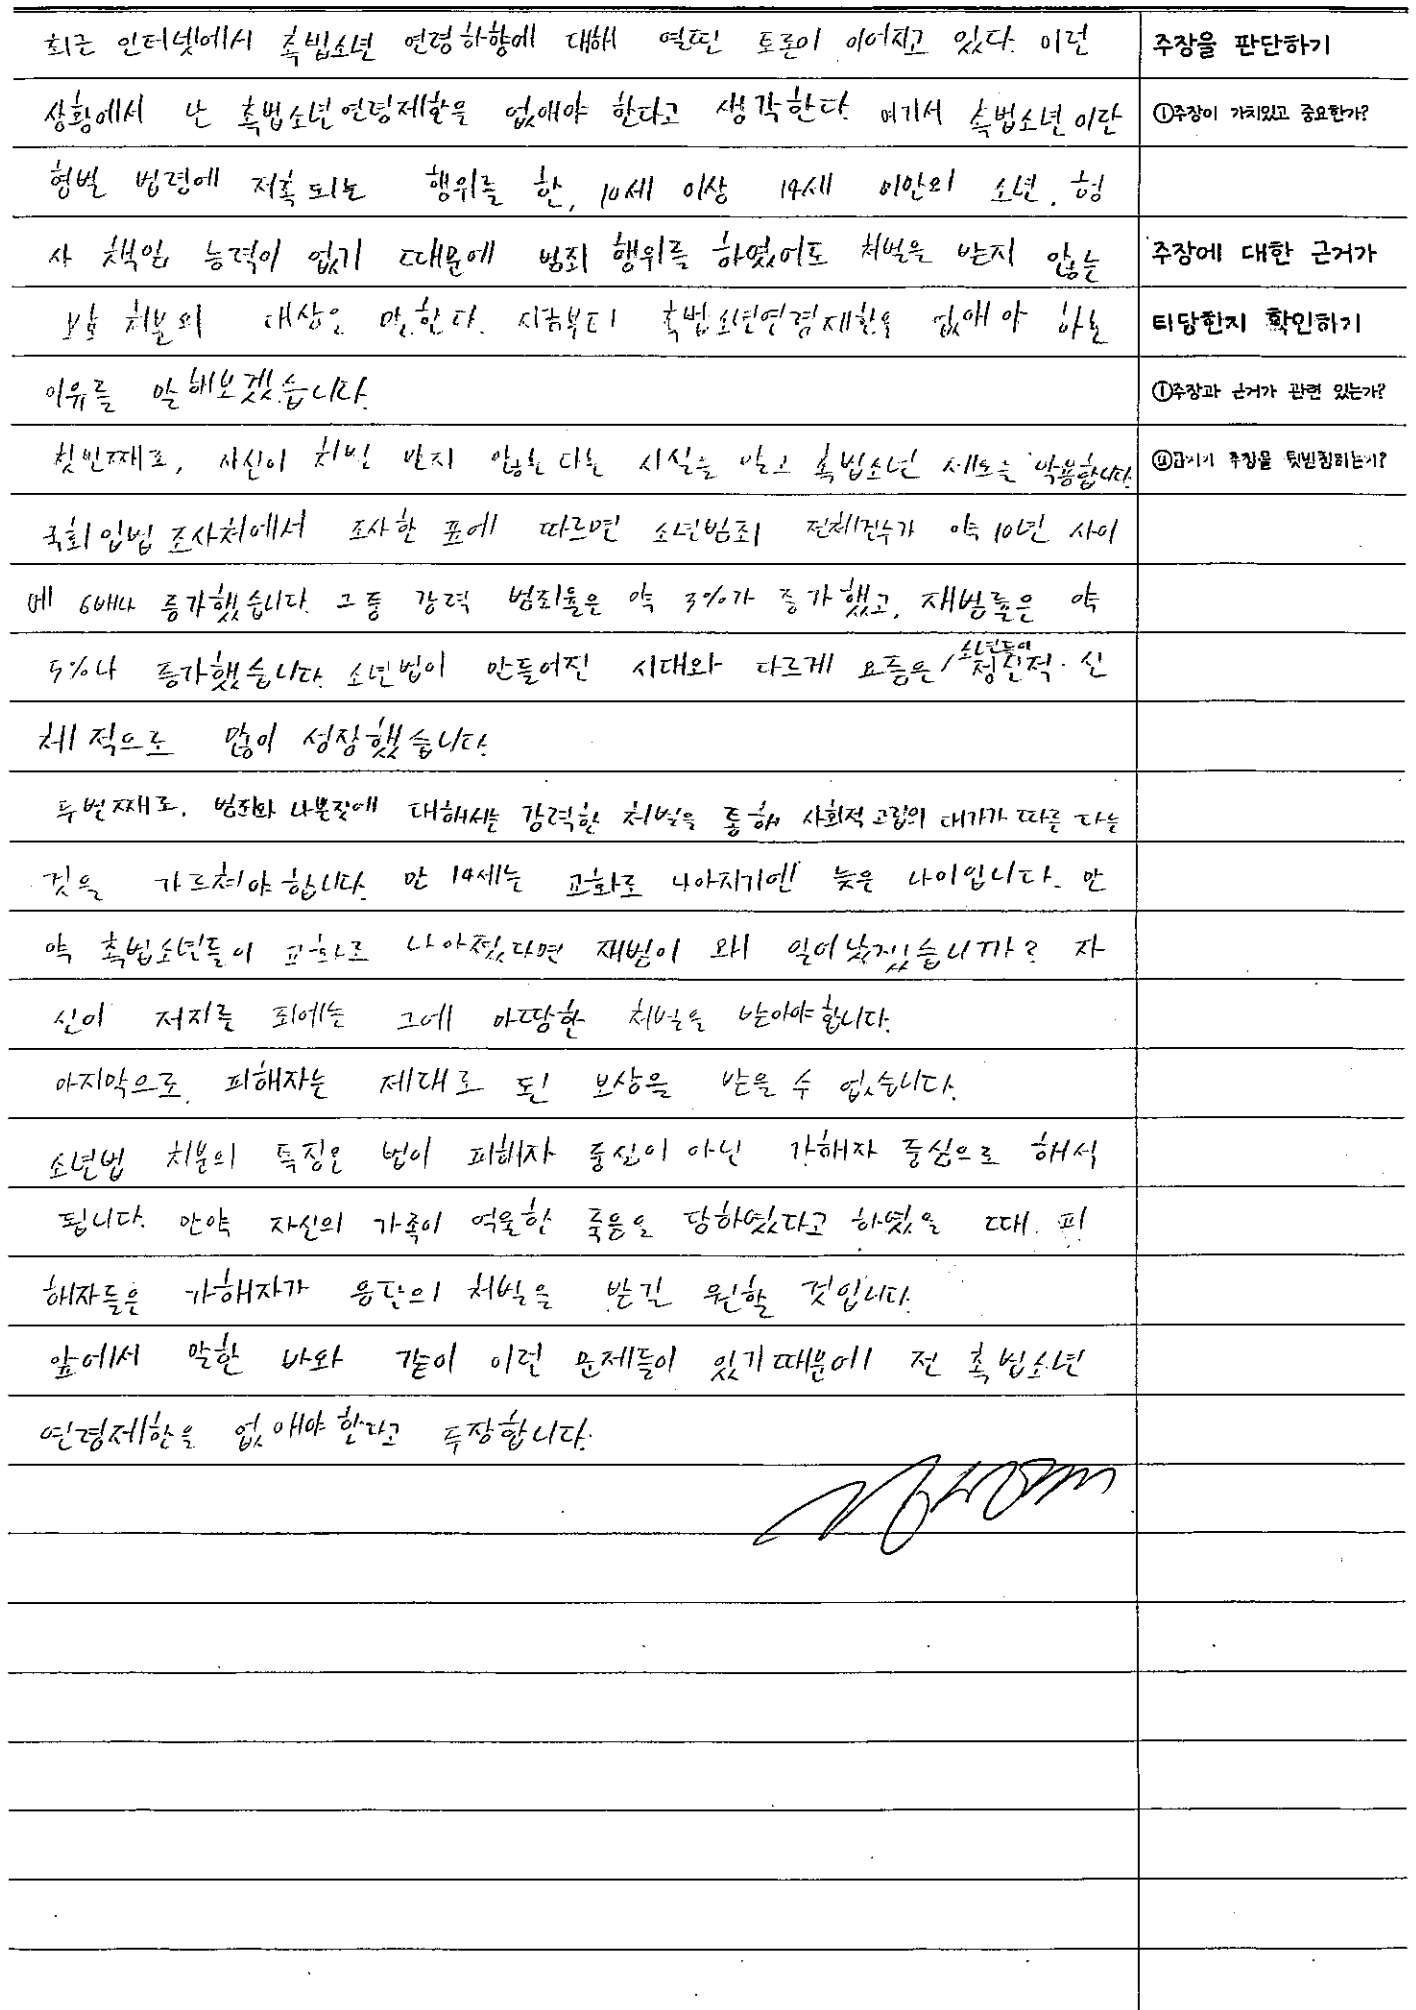 최근 인터넷에서 촉법소년 연령하향에 대해 열띤 토론이 이어지고 있다. 이런
주장을 판단하기
상황에서 난 촉법소년연령제한을 없애야 한다고 생각한다. 여기서 촉법소년이란
①주장이 가치있고 중요한가?
형벌 법령에 저촉되는 행위를 한, 10세 이상 14세 미만의 소년. 형
사 책임 능력이 없기 때문에 범죄 행위를 하였어도 처벌을 받지 않는
주장에 대한 근거가
보호 처분의 대상을 말한다. 지금부터 촉법소년연령제한을 없애야 하는
타당한지 확인하기
이유를 말해보겠습니다.
①주장과 근거가 관련 있는가?
첫번째로, 자신이 처벌 받지 않는 다는 사실을 알고 촉법소년 제도를 악용합니다.
②근거가 주장을 뒷받침하는가?
국회입법조사처에서 조사한 표에 따르면 소년범죄 전체건수가 약 10년 사이
에 6배나 증가했습니다. 그 중 강력 범죄율은 약 3%가 증가했고, 재범률은 약
5%나 증가했습니다. 소년법이 만들어진 시대와 다르게 요즘은 소년들이 정신적·신
체적으로 많이 성장했습니다.
두번째로, 범죄와 나쁜짓에 대해서는 강력한 처벌을 통해 사회적 고립의 대가가 따른 다는
것을 가르쳐야합니다. 만 14세는 교화로 나아지기엔 늦은 나이입니다. 만
약 촉법소년들이 교화로 나아졌다면 재범이 왜 일어났겠습니까? 자
신이 저지른 죄에는 그에 마땅한 처벌을 받아야합니다.
마지막으로, 피해자는 제대로 된 보상을 받을 수 없습니다.
소년법 처분의 특징은 법이 피해자 중심이 아닌 가해자 중심으로 해석
됩니다. 만약 자신의 가족이 억울한 죽음을 당하였다고 하였을 때. 피
해자들은 가해자가 응단의 처벌을 받길 원할 것입니다.
앞에서 말한 바와 같이 이런 문제들이 있기때문에 전 촉법소년
연령제한을 없애야한다고 주장합니다.